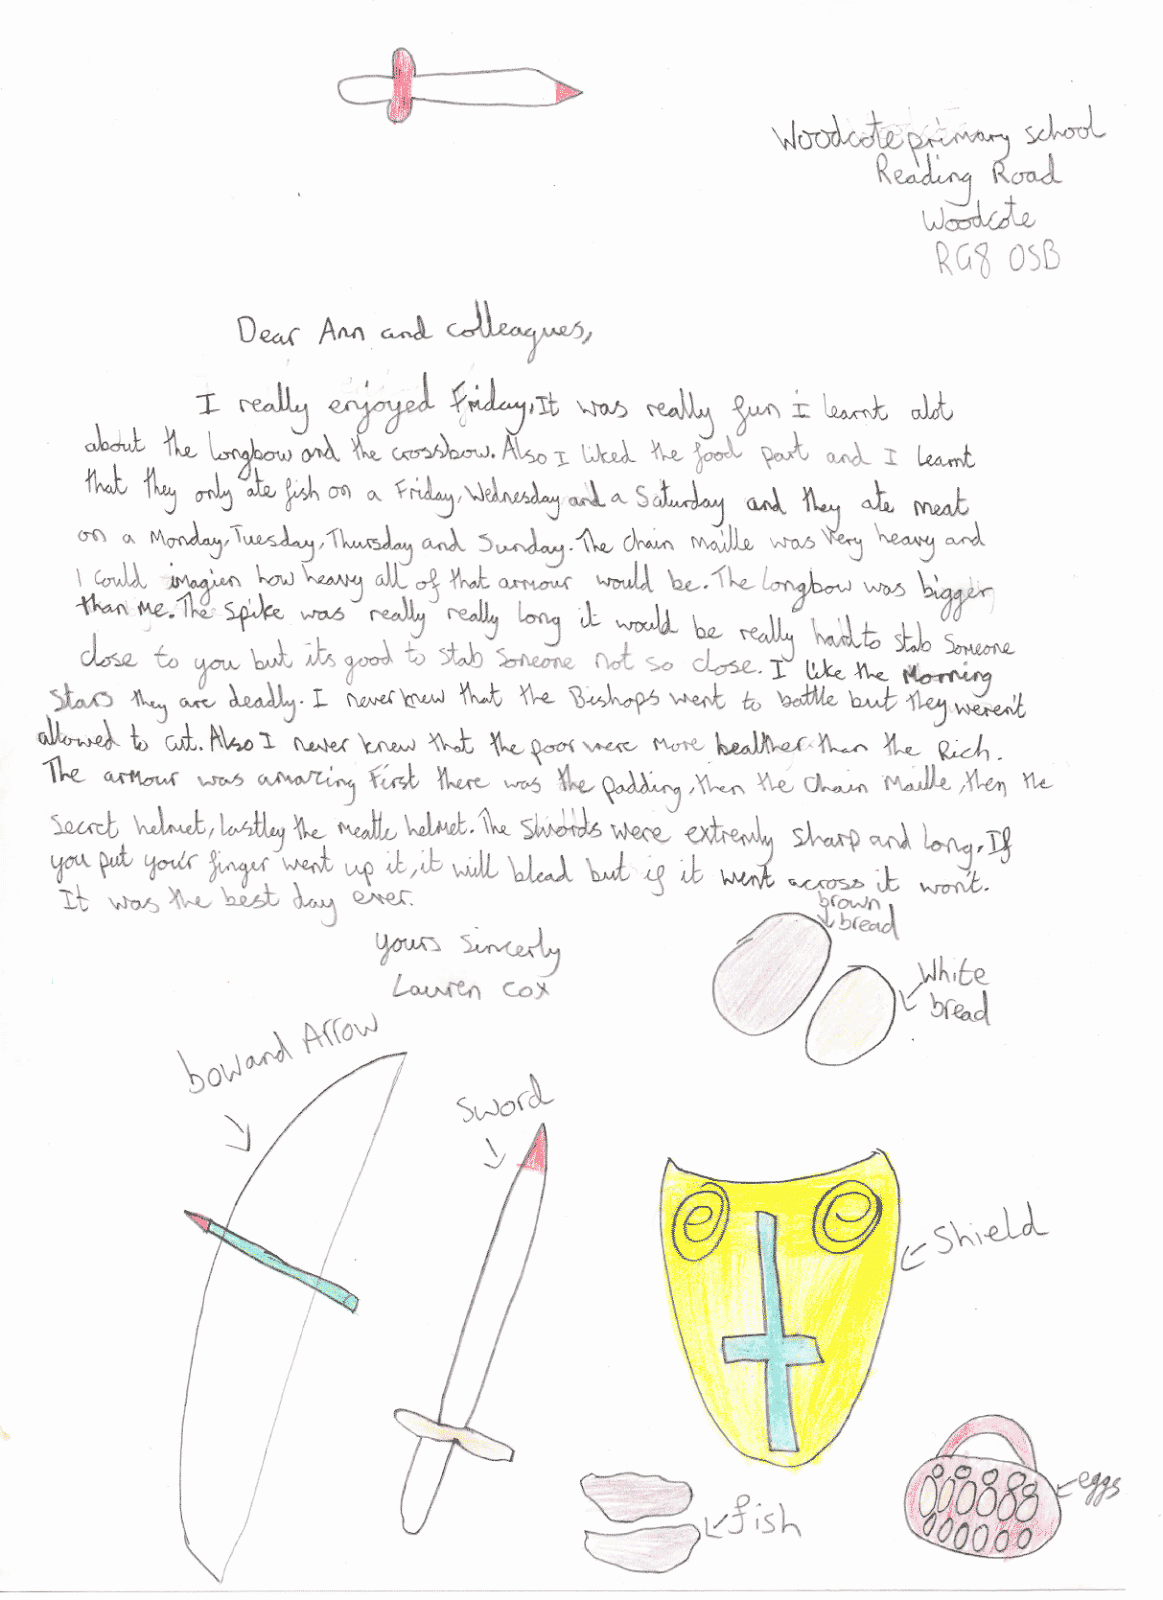 Woodcote primary school
Reading Road
Woodcote
RG8 0SB
Dear Ann and colleagues,
I really enjoyed Friday, It was really fun i learnt alot
about the longbow and the crossbow. Also I liked the food part and I learnt
that they only ate fish on a Friday, Wednesday and a Saturday and they ate meat
on a Monday, Tuesday, Thursday and Sunday. The Chain Maille was very heavy and
I could imagien how heavy all of that armour would be. The longbow was bigger
than me. The spike was really really long it would be really hard to stab someone
close to you but its good to stab someone not so close. I like the Morning
Stars they are deadly. I never knew that the Bishops went to battle but they weren't
allowed to cut. Also I never knew that the poor were more healther than the Rich.
The armour was amazing First there was the padding, then the Chain Maille, then the
secret helmet, lastley the meatle helmet. The Swords were extremly sharp and long. If
you put your finger went up it, it will blead but if it went across it won't.
It was the best day ever.
yours sincerly
Lauren Cox
brown
bread
White
bread
bow and Arrow
Sword
Shield
fish
eggs